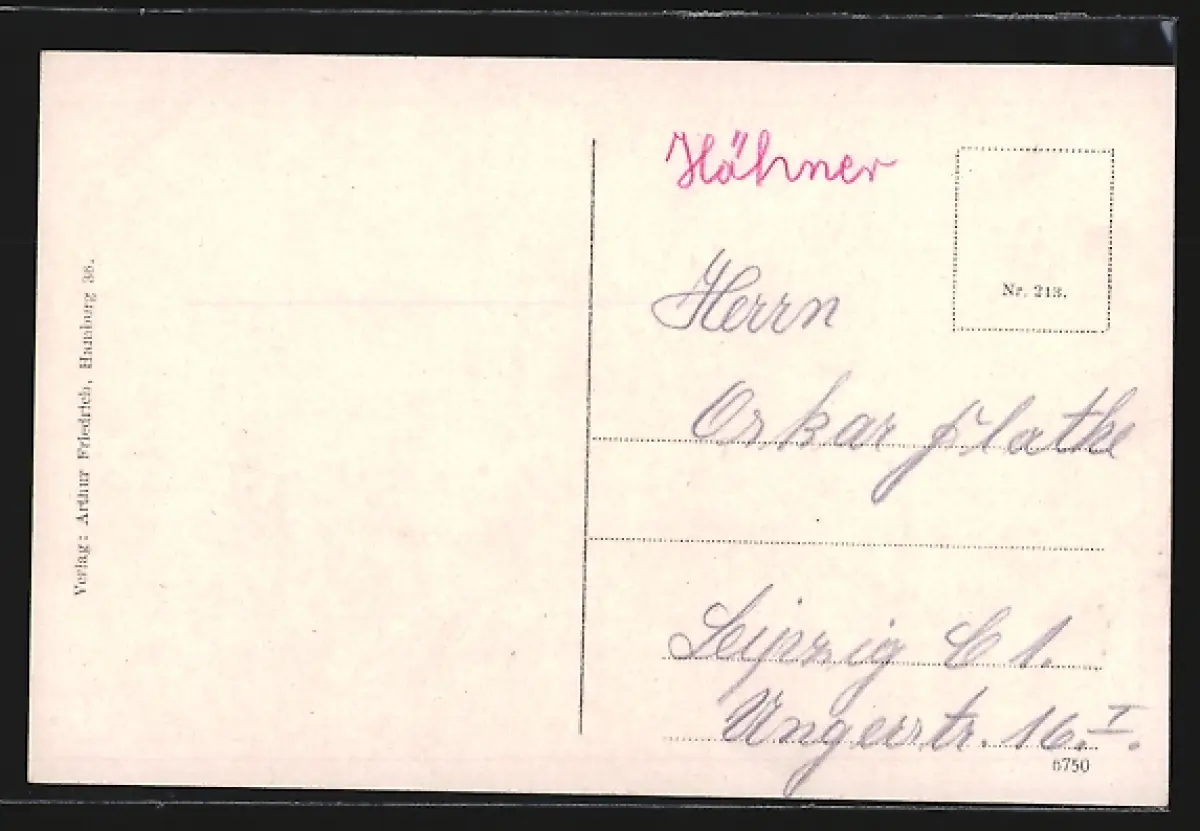 Verlag: Arthur Friedrich, Hamburg 36.
Höhner
Nr. 213.
Herrn
Oskar Flathe
Leipzig C 1.
Ungerstr. 16. I.
6750